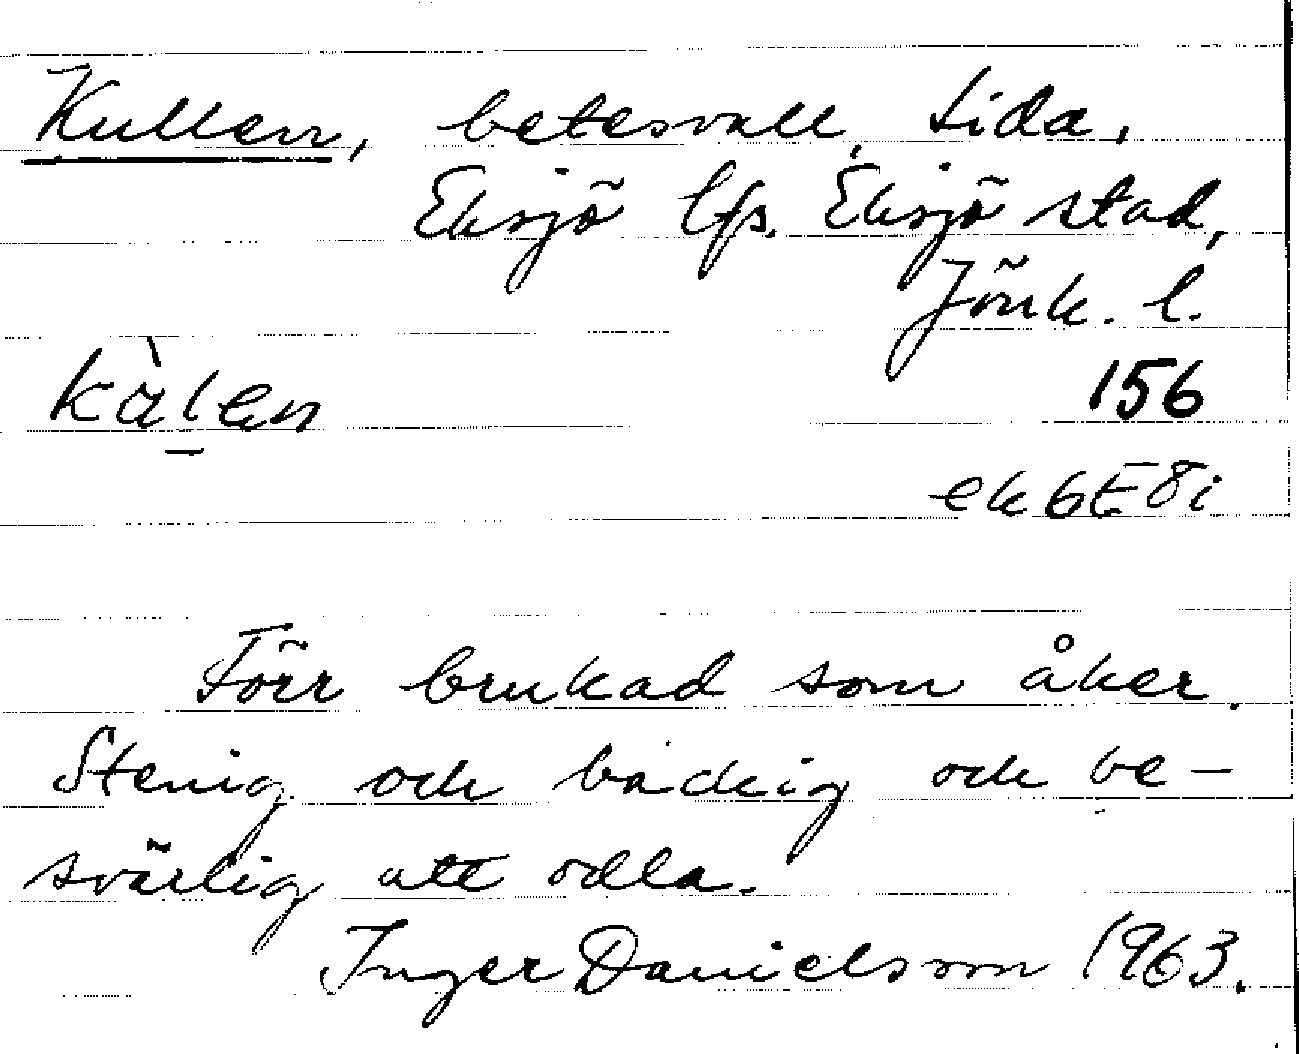 Kullen, betesvall, Lida,
Eksjö lfs. Eksjö stad,
Jönk. l.
kàl̲en 156
ek 6E8i
Förr brukad som åker.
Stenig och backig och be-
svärlig att odla.
Inger Danielsson 1963.